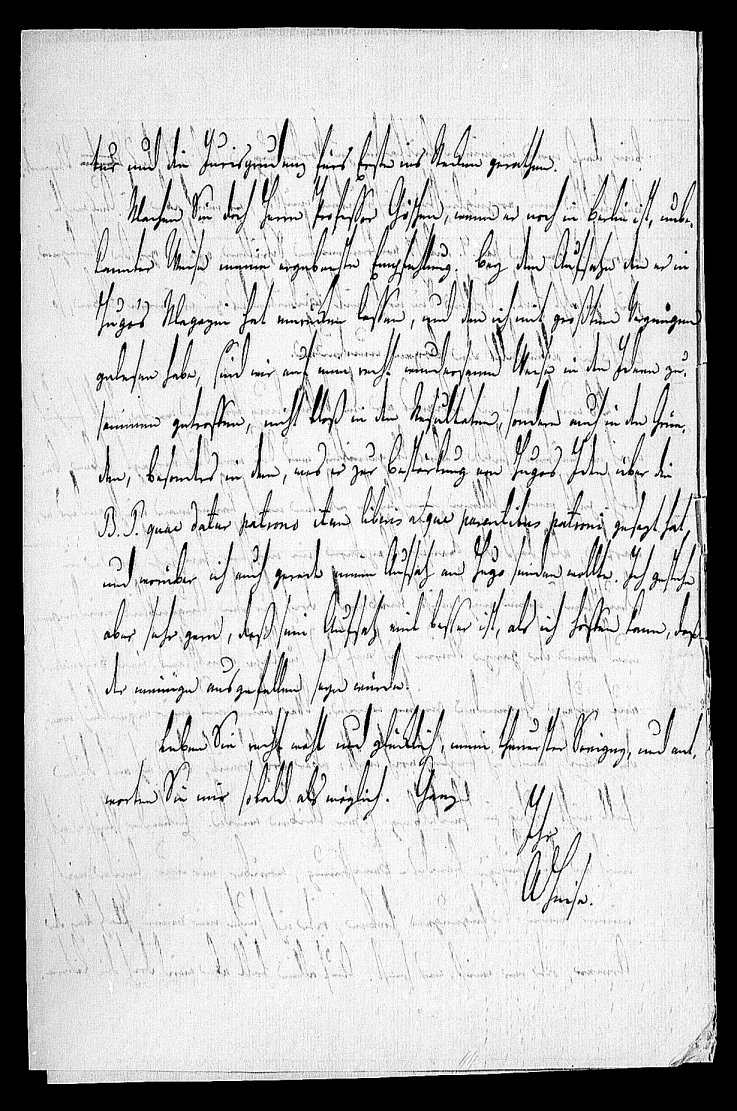 tur und die Jurisprudenz fürs Erste ins Stocken gerathen.
Machen Sie doch Herrn Professor Göschen, wenn er noch in Berlin ist, unbe-
kannter Weise meine ergebenste Empfehlung. Bey dem Aufsatze den er in
Hugo's Magazin hat einrücken lassen, und den ich mit größtem Vergnügen
gelesen habe, sind wir auf eine recht wundersame Weise in den Ideen zu-
sammen getroffen, nicht bloß in den Resultaten, sondern auch in den Grün-
den, besonders in dem, was er zur Bestärkung von Hugos Idee über die
B. P. quae datur patrono item liberis atque parentibus patroni gesagt hat,
und worüber ich auch gerade einen Aufsatz an Hugo senden wollte. Ich gestehe
aber sehr gern, daß sein Aufsatz viel besser ist, als ich hoffen kann, daß
der meinige ausgefallen seyn würde.
Leben Sie recht wohl und glücklich, mein theuerster Savigny, und ant-
worten Sie mir sobald als möglich. Ganz
Ihr
AHeise.